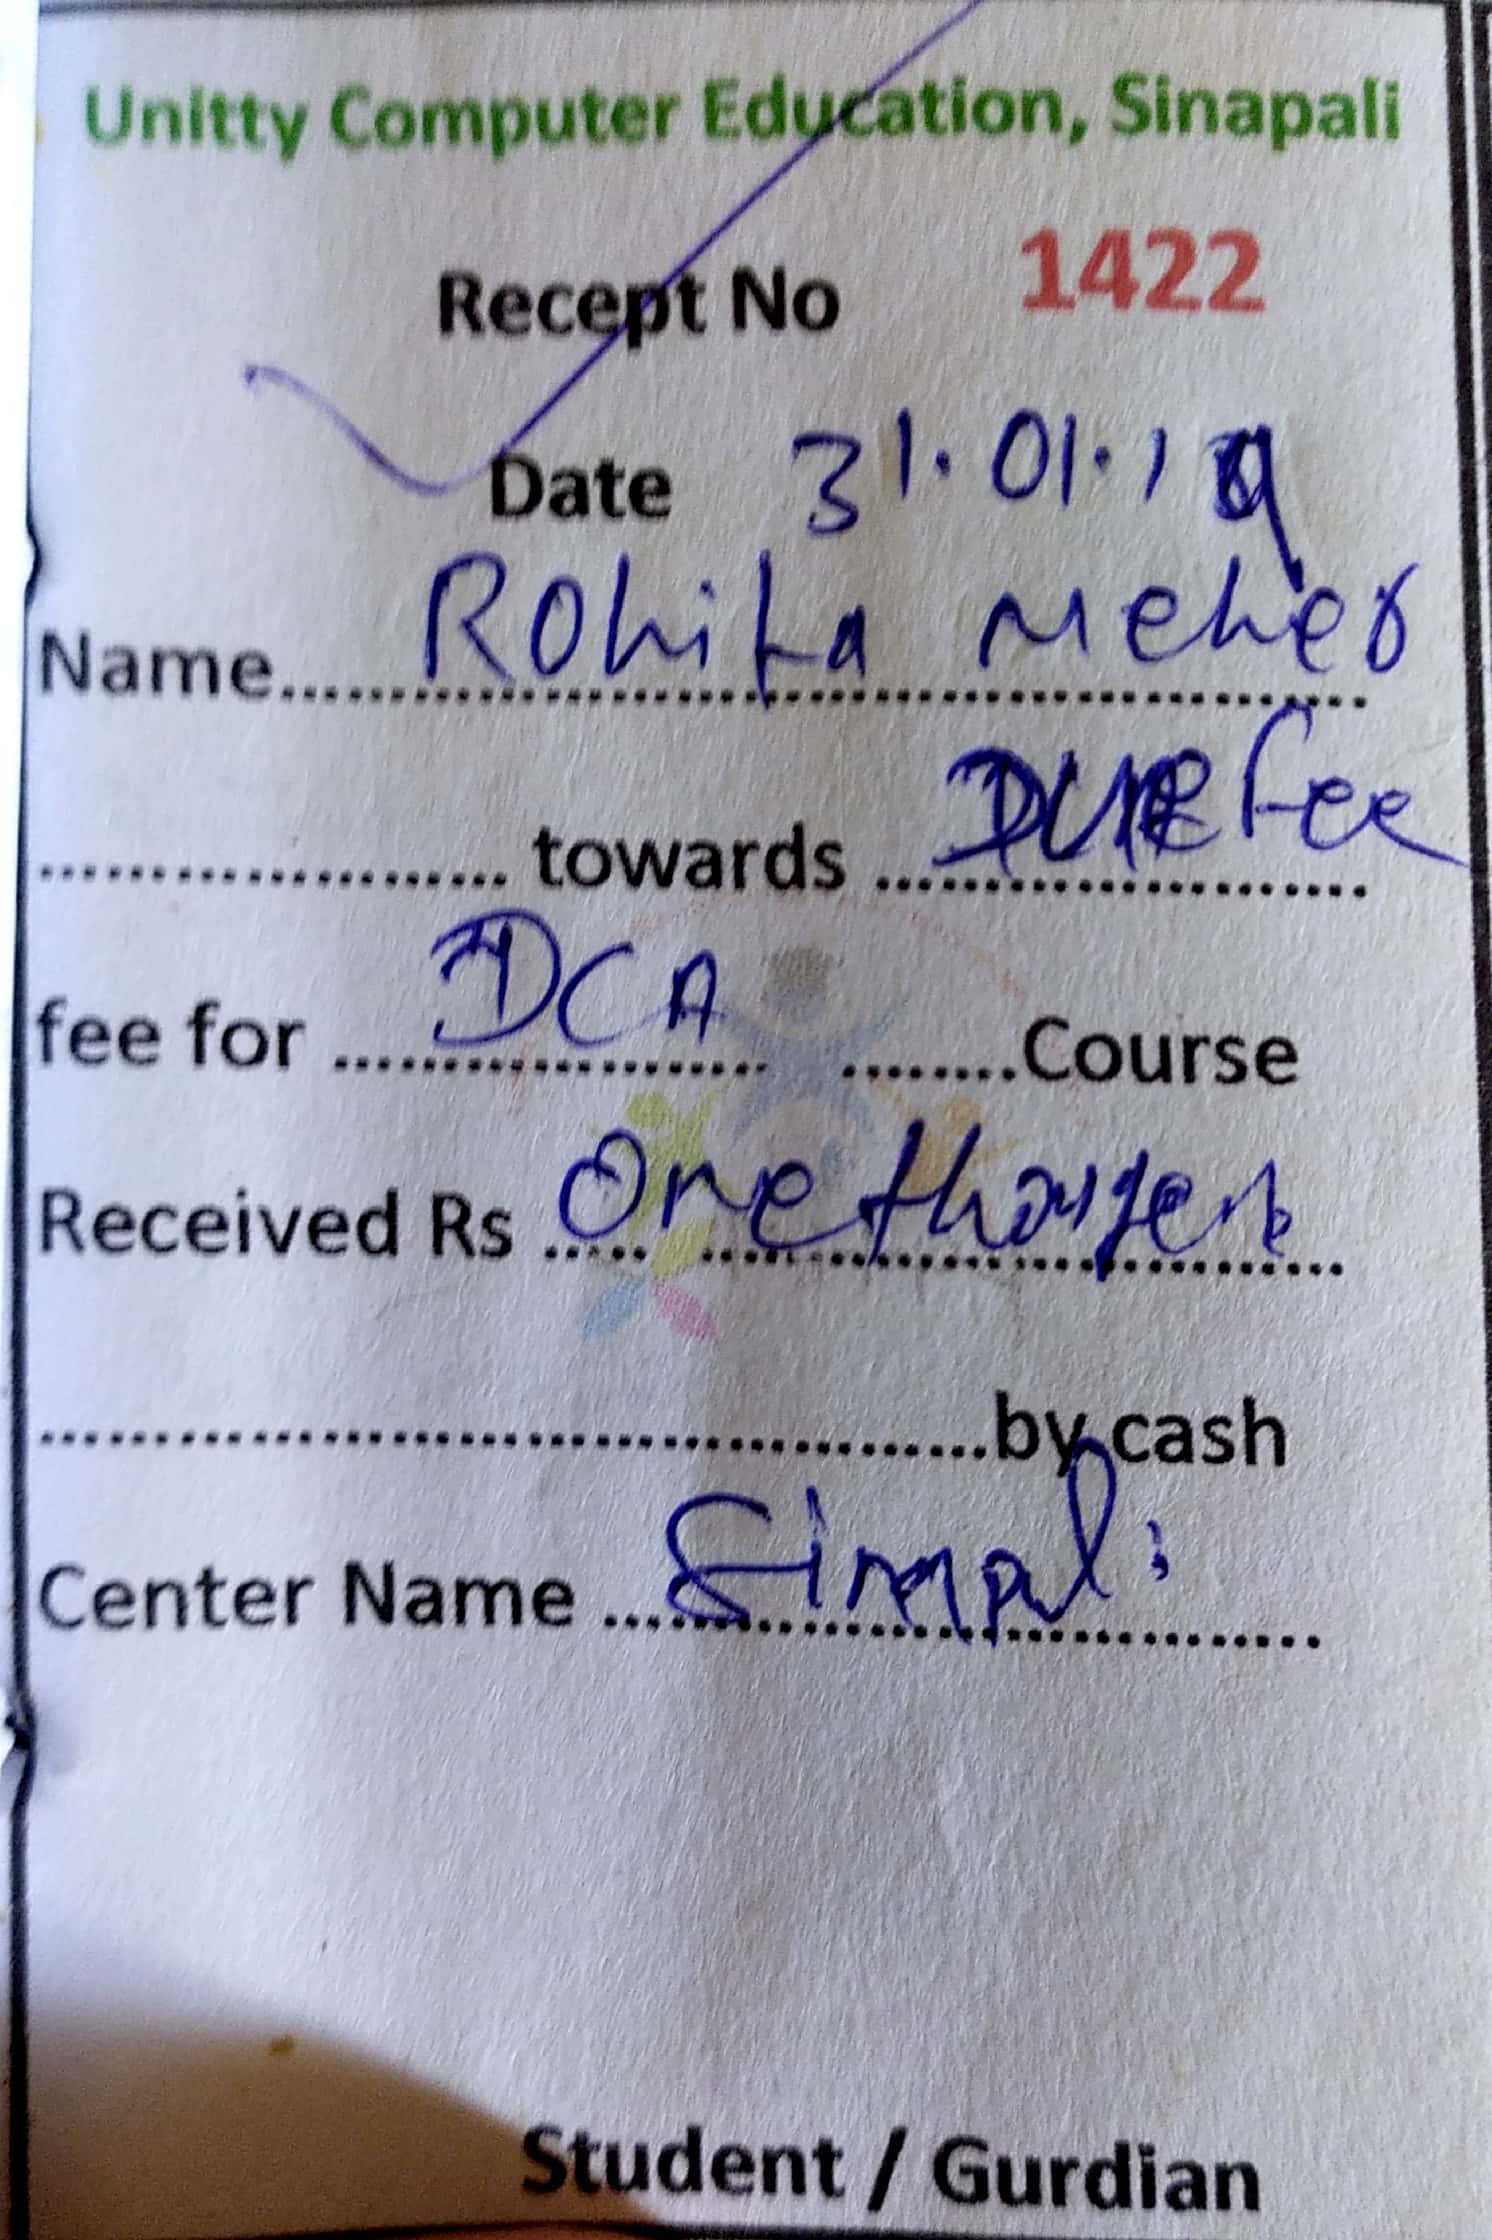 Unitty Computer Education, Sinapali
Recept No 1422
Date 31.01.19
Name.......Rohita Meher
.................... towards ....Due Fee
fee for ....DCA.... ........Course
Received Rs ....One thousend
........................................by cash
Center Name ....Sinapali
Student / Gurdian